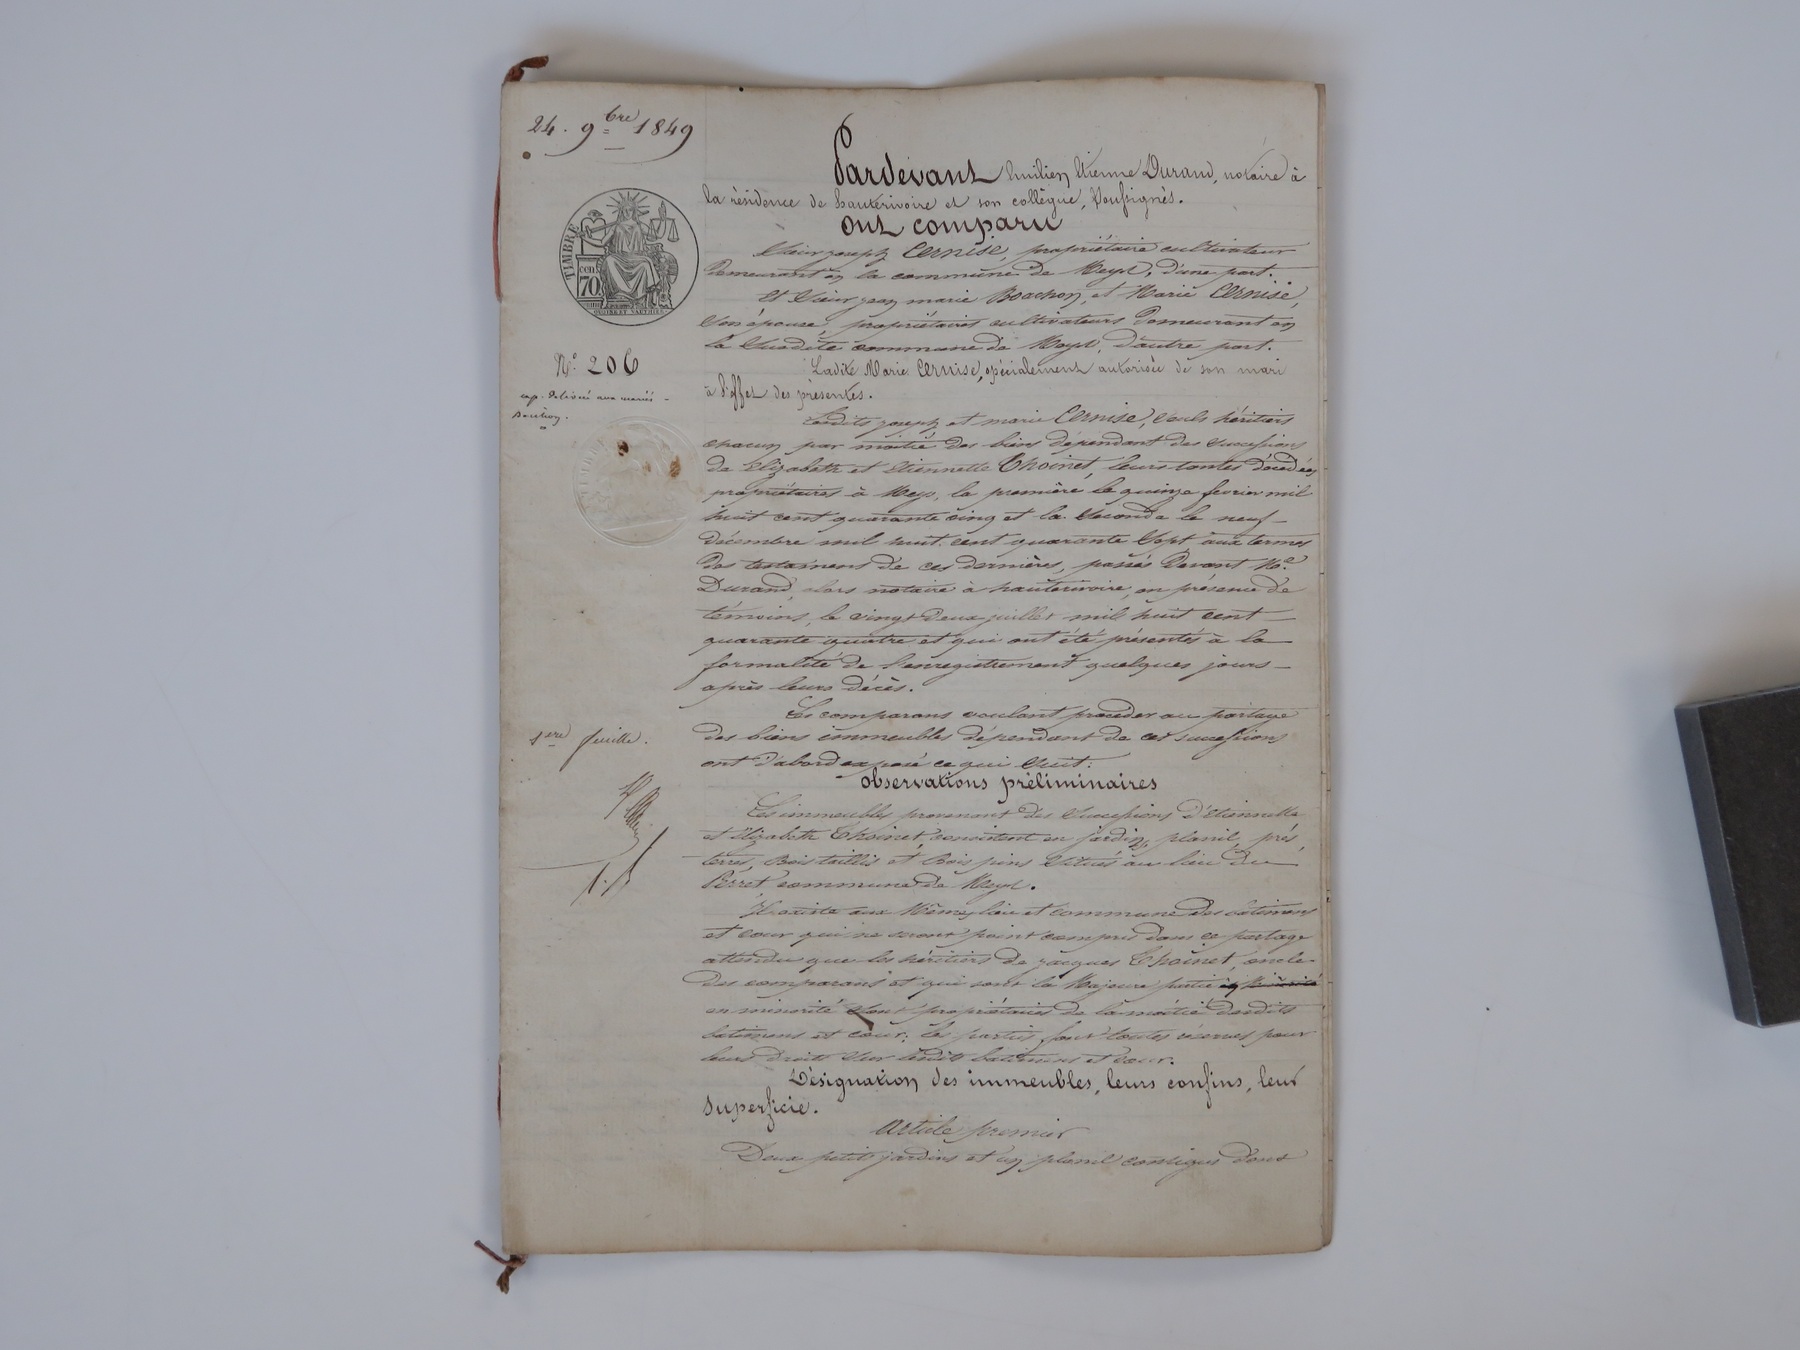 24. 9bre 1849
Pardevant Emilien Etienne Durand, notaire à
la résidence de hauterivoire et son collègue, Soussignés.
ont comparu
TIMBRE
cen
70
Sieur joseph Cernise, propriétaire cultivateur
Demeurant en la commune de Meys, d'une part.
Et Sieur jean marie Boachon, et Marie Cernise,
Son épouse, propriétaires cultivateurs Demeurant en
la Susdite commune de Meys, d'autre part.
No. 206
Ladite Marie Cernise, spécialement autorisée de son mari
à l'effet des présentes.
exp. délivré aux mariés
Boachon.
Lesdits joseph et marie Cernise, Seuls héritiers
chacun par moitié des biens dépendant des Successions
de Elizabeth et Etiennette Thoinet, leurs tantes décédées
propriétaires à Meys, la première le quinze fevrier mil
huit cent quarante cinq et la Seconde le neuf
décembre mil huit cent quarante Sept aux termes
des testamens de ces dernières, passés Devant Me.
Durand, alors notaire à hauterivoire, en présence de
témoins, le vingt deux juillet mil huit cent
quarante quatre et qui ont été présentés à la
formalité de l'enregistrement quelques jours
après leurs décès.
Les comparans voulant procéder au partage
des biens immeubles dépendant de ces successions
ont d'abord exposé ce qui Suit:
1ere feuille.
observations préliminaires
Les immeubles provenant des Successions d'Etiennette
et Elizabeth Thoinet, consistent en jardin, planil, prés,
terres, Bois taillis et Bois pins Situés au lieu du
Perret commune de Meys.
Il existe aux Même lieu et commune des batimens
et cour qui ne seront point compris dans ce partage
attendu que les héritiers de jacques Thoinet, oncle
des comparans et qui sont la Majeure partie
en minorité Sont propriétaires de la moitié desdits
batimens et cour; les parties font toutes réserves pour
leurs droits Sur lesdits batimens et cour.
Désignation des immeubles, leurs confins, leur
superficie.
Article premier
Deux petits jardins et un planil contigus dont